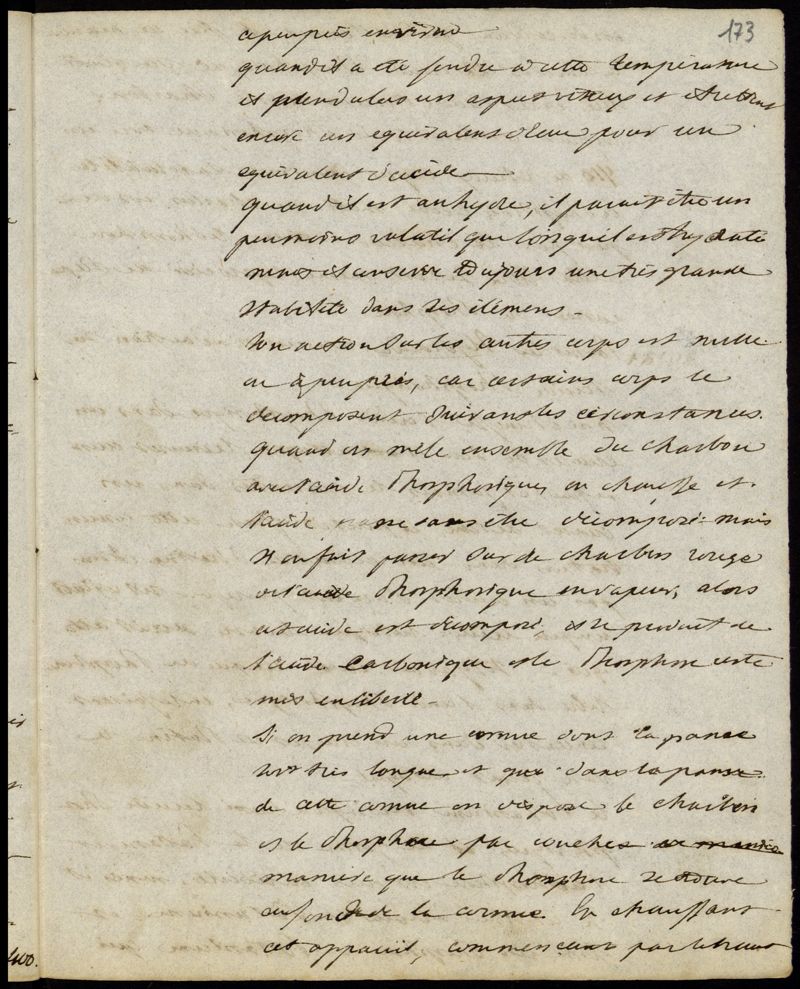 173
apeuprès environ
quand il a été fondu à cette température
il prend alors un aspect vitreux et retient
encore un equivalent d'eau pour un
equivalent d'acide
quand il est anhydre, il parait être un
peu moins volatil que lorsqu'il est hydraté
mais il conserve toujours une très grande
stabilité dans ses élémens.
Son action sur les autres corps est nulle
ou àpeuprès, car certains corps le
décomposent suivant les circonstances.
quand on mêle ensemble du charbon
avec l'acide Phosphorique, on chauffe et
l'acide passe sans être décomposé mais
si on fait passer sur de charbon rouge
de l'acide Phosphorique en vapeur, alors
est décomposé, il se produit de
l'acide Carbonique et le Phosphore reste
mis en liberté.
Si on prend une cornue dont la panse
soit très longue et que dans la panse
de cette cornue on dispose le charbon
et le Phosphore par couches
manière que le Phosphore se trouve
au fond de la cornue. En chauffant
cet appareil, commençant par le haut
400.